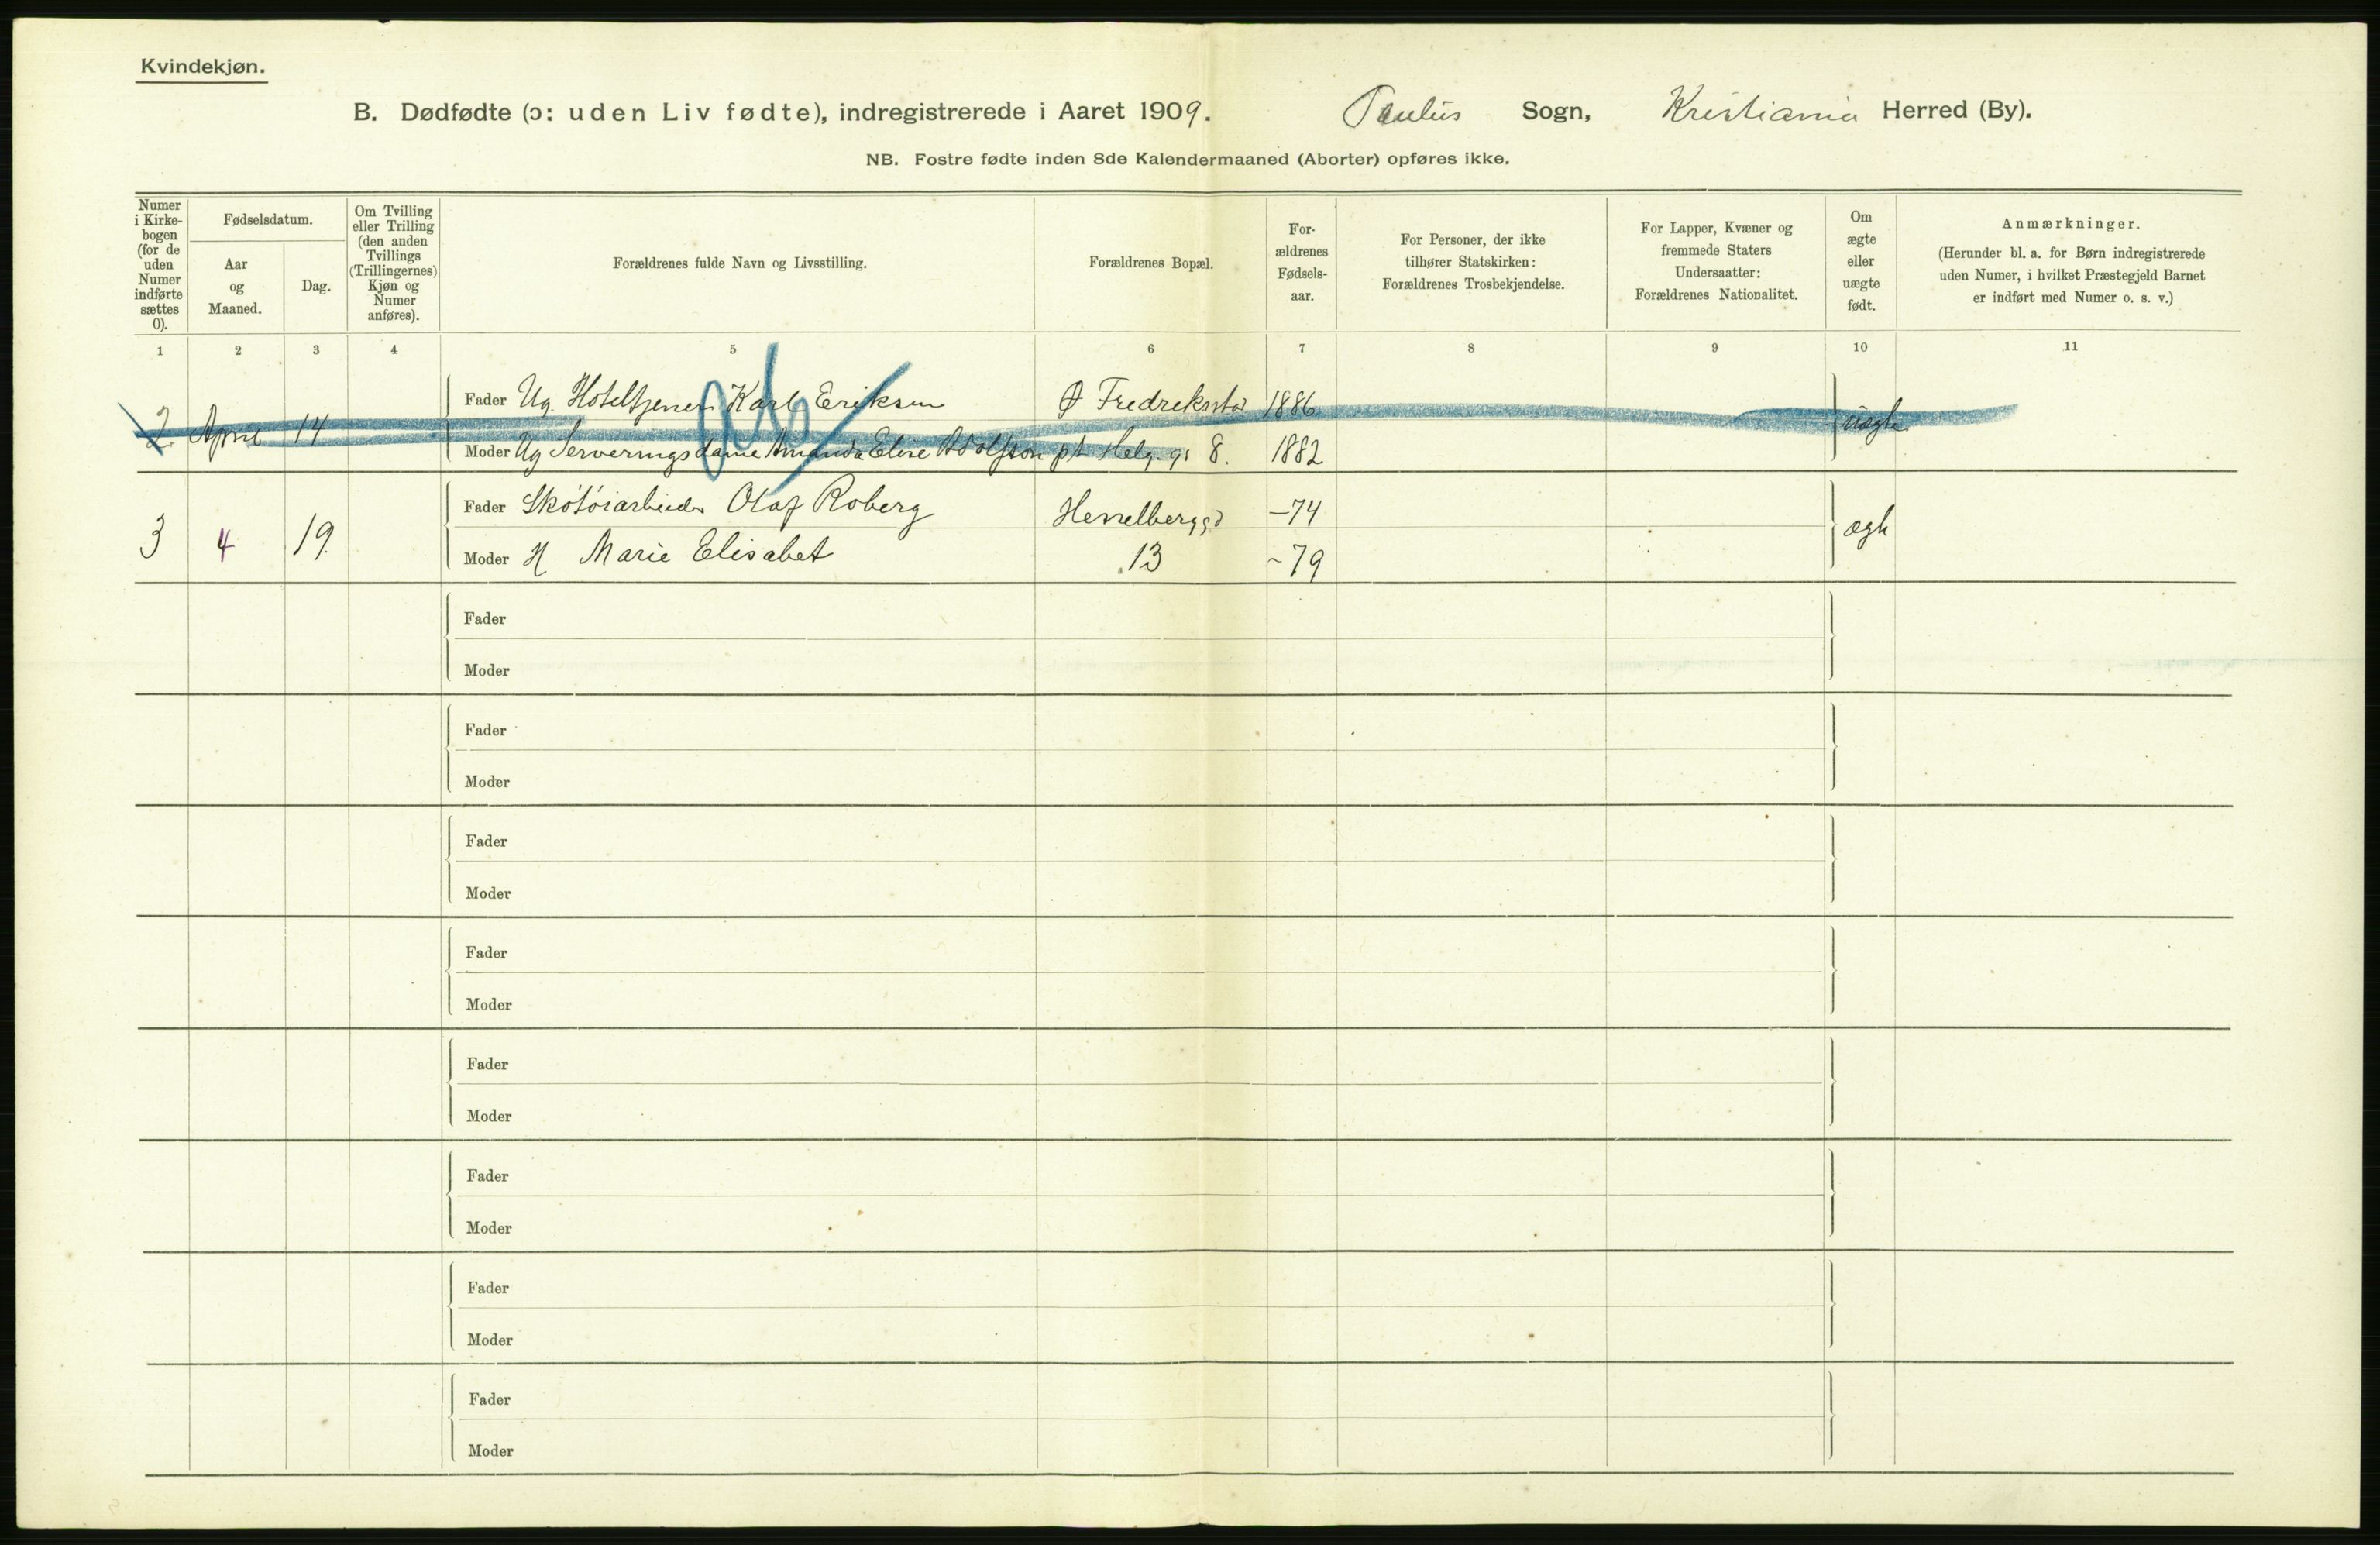 Kvindekjøn.
B. Dødfødte (ɔ: uden Liv fødte), indregistrerede i Aaret 1909. Paulus Sogn, Kristiania Herred (By).
NB. Fostre fødte inden 8de Kalendermaaned (Aborter) opføres ikke.
Numer i Kirke-bogen (for de uden Numer indførte sættes 0).
Fødselsdatum.
Aar og Maaned.
Dag.
Om Tvilling eller Trilling (den anden Tvillings (Trillingernes) Kjøn og Numer anføres).
Forældrenes fulde Navn og Livsstilling.
Forældrenes Bopæl.
For-ældrenes Fødsels-aar.
For Personer, der ikke tilhører Statskirken: Forældrenes Trosbekjendelse.
For Lapper, Kvæner og fremmede Staters Undersaatter: Forældrenes Nationalitet.
Om ægte eller uægte født.
Anmærkninger.
(Herunder bl. a. for Børn indregistrerede uden Numer, i hvilket Præstegjeld Barnet er indført med Numer o. s. v.)
1 2 3 4 5 6 7 8 9 10 11
Fader Ug. Hoteltjener Karl Eriksen Ø Fredriksstad 1886
2. April 14 uægte
Moder Ug Serveringsdame Amanda Elise Adolfson pt Helg. gt 8. 1882
Fader Skotøiarbeider Olaf Roberg Hesselbergsgd -74
3 4 19. ægte
Moder H Marie Elisabet 13 -79
Fader
Moder
Fader
Moder
Fader
Moder
Fader
Moder
Fader
Moder
Fader
Moder
Fader
Moder
Fader
Moder